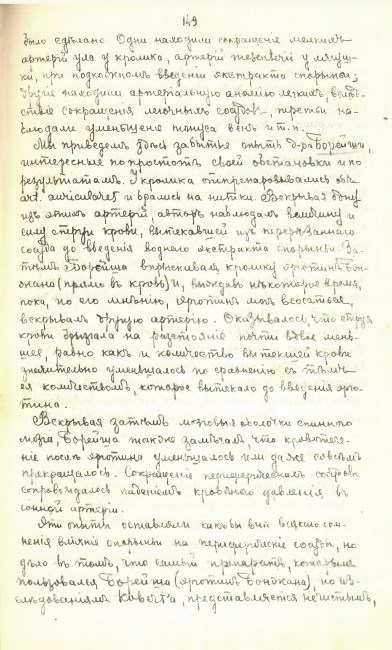 149
было сдѣлано. Одни находили сокращеніе мелкихъ
артерій уха у кролика, артерій перепонки у лягуш-
ки, при подкожномъ введеніи экстракта спорыньи;
другіе находили артеріальную анемію легкихъ, вслѣд-
ствіе сокращенія легочныхъ сосудовъ, третьи на-
блюдали уменьшеніе тонуса венъ и т.п.
Мы приведемъ здѣсь забытые опыты д-ра Борейши,
интересные по простотѣ своей обстановки и по
результатамъ. У кролика отпрепаровывались обѣ
art. auriculares и брались на нитки. Вскрывая одну
изъ этихъ артерій, авторъ наблюдалъ величину и
силу струи крови, вытекавшей изъ перерѣзаннаго
сосуда до введенія воднаго экстракта спорыньи. За-
тѣмъ Борейша впрыскивалъ кролику эрготинъ Бон-
жана (прямо въ кровь) и, выждавъ нѣкоторое время,
пока, по его мнѣнію, эрготинъ могъ всосаться,
вскрывалъ другую артерію. Оказывалось, что струя
крови брызгала на разстояніе почти вдвое мень-
шее, равно какъ и количество вытекшей крови
значительно уменьшалось по сравненію съ тѣмъ
ея количествомъ, которое вытекало до введенія эрго-
тина.
Вскрывая затѣмъ мозговыя оболочки спинного
мозга, Борейша также замѣчалъ, что кровотече-
ніе послѣ эрготина уменьшалось или даже совсѣмъ
прекращалось. Сокращеніе периферическихъ сосудовъ
сопровождалось паденіемъ кровяного давленія въ
сонной артеріи.
Эти опыты оставляли какъ бы внѣ всякаго сом-
ненія вліяніе спорыньи на периферическіе сосуды, но
дѣло въ томъ, что самый препаратъ, которымъ
пользовался Борейша (эрготинъ Бонжана), по из-
слѣдованіямъ Kobert'а, представляется нечистымъ,